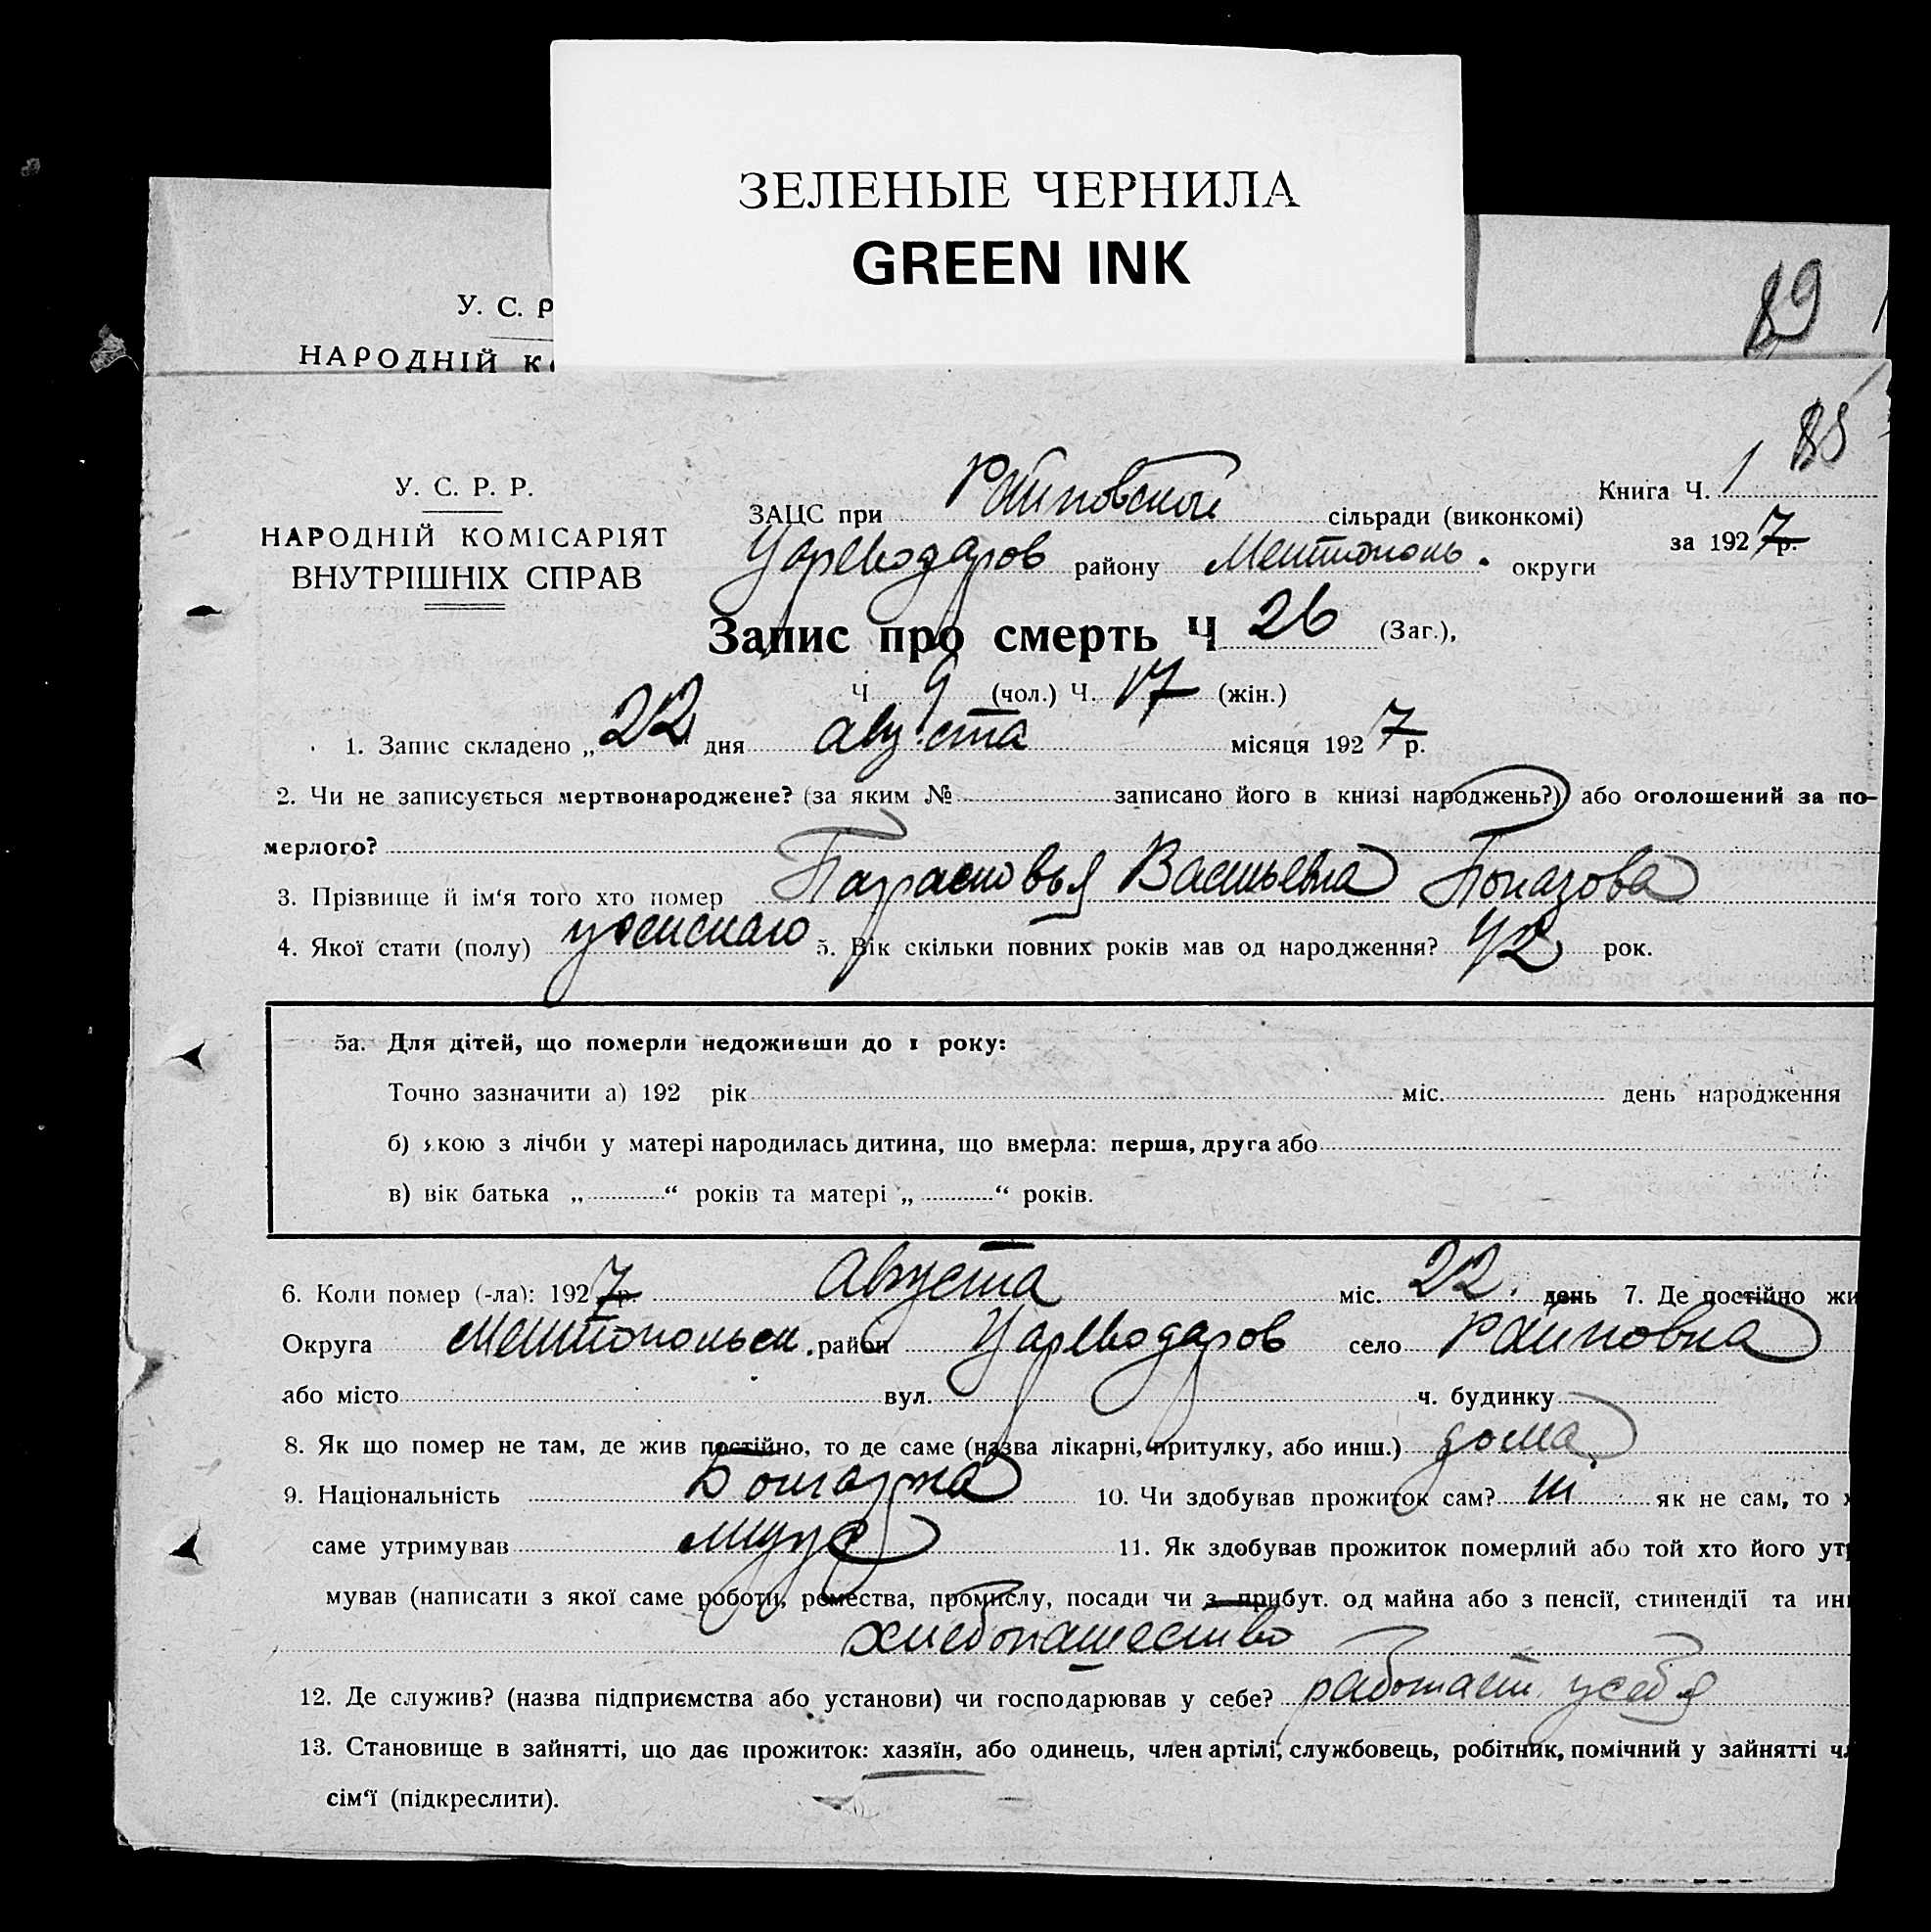 ЗЕЛЕНЫЕ ЧЕРНИЛА
GREEN INK
У. С. Р
НАРОДНІЙ К
89
85
У. С. Р. Р.
НАРОДНІЙ КОМІСАРІЯТ
ВНУТРІШНІХ СПРАВ
Книга Ч. 1
за 1927 р.
ЗАЦС при Райновской сільради (виконкомі)
Цареводаров району Мелитополь. округи
Запис про смерть Ч 26 (Заг.),
Ч 9 (чол.) Ч. 17 (жін.)
1. Запис складено „22" дня августа місяця 1927 р.
2. Чи не записується мертвонароджене? (за яким № записано його в книзі народжень?) або оголошений за по-
мерлого?
3. Прізвище й ім'я того хто помер Парасковья Васильевна Поназова
4. Якої стати (полу) женскаго 5. Вік скільки повних років мав од народження? 42 рок.
5а. Для дітей, що померли недоживши до 1 року:
Точно зазначити а) 192 рік міс. день народження
б) якою з лічби у матері народилась дитина, що вмерла: перша, друга або
в) вік батька „ “ років та матері „ “ років.
6. Коли помер (-ла): 1927 р. августа міс. 22. день 7. Де постійно жи
Округа Мелитопольск. район Цареводаров село Райновка
або місто вул. ч. будинку
8. Як що помер не там, де жив постійно, то де саме (назва лікарні, притулку, або инш.) дома
9. Національність Болгарка 10. Чи здобував прожиток сам? як не сам, то х
саме утримував муж 11. Як здобував прожиток померлий або той хто його утр
мував (написати з якої саме роботи, ремества, промислу, посади чи з прибут. од майна або з пенсії, стипендії та ин
хлебопашество
12. Де служив? (назва підприємства або установи) чи господарював у себе? работает у себя
13. Становище в зайнятті, що дає прожиток: хазяїн, або одинець, член артілі, службовець, робітник, помічний у зайнятті чл
сім'ї (підкреслити).